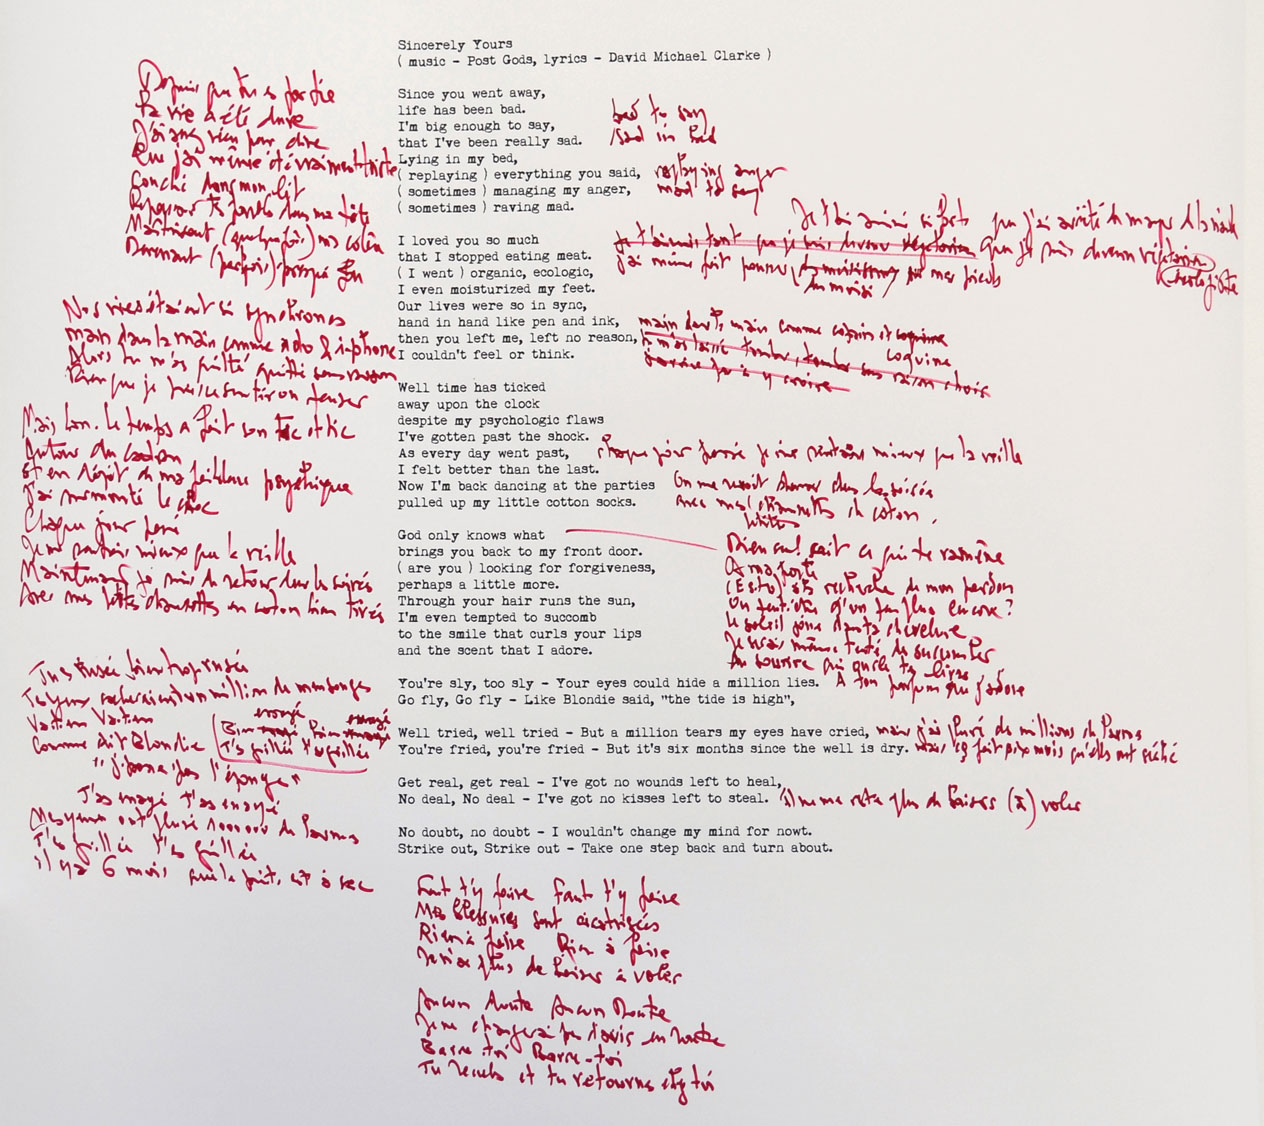 Sincerely Yours
( music - Post Gods, lyrics - David Michael Clarke )
Since you went away,
life has been bad.
I'm big enough to say,
that I've been really sad.
Lying in my bed,
( replaying ) everything you said,
( sometimes ) managing my anger,
( sometimes ) raving mad.
bad to say
sad in bed
replaying anger
mad to say
Depuis que tu es partie
Ta vie a été dure
que j'ai même été vraiment triste
Couché dans mon lit
tes paroles dans ma tête
Maîtrisant (quelquefois) ma colère
Devenant (parfois) presque fou
I loved you so much
that I stopped eating meat.
( I went ) organic, ecologic,
I even moisturized my feet.
Our lives were so in sync,
hand in hand like pen and ink,
then you left me, left no reason,
I couldn't feel or think.
Je t'ai aimé si fort que j'ai arrêté de manger de la viande
Je t'aimais tant que je suis devenu végétarien que je suis devenu
écologiste
j'ai même fait mes pieds
main dans la main comme copain et coquine
coquine
Nos vies étaient si synchrones
main dans la main comme ado & i-phone
Alors tu m'as quitté sans raison
Rien que je puisse sentir ou penser
Well time has ticked
away upon the clock
despite my psychologic flaws
I've gotten past the shock.
As every day went past,
I felt better than the last.
Now I'm back dancing at the parties
pulled up my little cotton socks.
chaque jour passé je me sentais mieux que la veille
On me revoit danser dans les soirées
avec mes chaussettes de coton.
petites
Mais bon. le temps a fait son tic et tic
Autour du cadran
Et en dépit de ma faiblesse psychique
J'ai surmonté le choc
Chaque jour passé
Je me sentais mieux que la veille
Maintenant je suis de retour dans les soirées
Avec mes petites chaussettes en coton bien tirées
God only knows what
brings you back to my front door.
( are you ) looking for forgiveness,
perhaps a little more.
Through your hair runs the sun,
I'm even tempted to succomb
to the smile that curls your lips
and the scent that I adore.
Dieu seul sait ce qui te ramène
A ma porte
(Es tu) à la recherche de mon pardon
Ou peut-être d'un peu plus encore ?
Le soleil joue dans ta chevelure
Je serais même tenté de succomber
Au sourire qui ourle tes lèvres
A ton parfum que j'adore
You're sly, too sly - Your eyes could hide a million lies.
Go fly, Go fly - Like Blondie said, "the tide is high",
Tu es rusée, bien trop rusée
Tes yeux cacheraient un million de mensonges
Va t'en Va t'en
Comme dit Blondie
"j'passe pas l'éponge"
Bien essayé Bien essayé
T'es grillée T'es grillée
Well tried, well tried - But a million tears my eyes have cried,
You're fried, you're fried - But it's six months since the well is dry.
mais j'ai pleuré des millions de larmes
mais ça fait six mois qu'elles ont séché
T'as essayé T'as essayé
Mes yeux ont pleuré 1000000 de larmes
T'es grillée T'es grillée
il y a 6 mois que le puits est à sec
Get real, get real - I've got no wounds left to heal,
No deal, No deal - I've got no kisses left to steal.
il ne me reste plus de baisers (à) voler
No doubt, no doubt - I wouldn't change my mind for nowt.
Strike out, Strike out - Take one step back and turn about.
Faut t'y faire Faut t'y faire
Mes blessures sont cicatrisées
Rien à faire Rien à faire
Je n'ai plus de baisers à voler
Aucun doute Aucun doute
Je ne changerai pas d'avis en
Barre toi Barre-toi
Tu recules et tu retournes chez toi